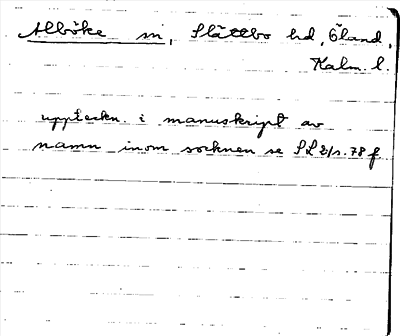 Alböke sn, Slättbo hd, Öland,
Kalm. l.
uppteckn. i manuskript av
namn inom socknen se s. 78 f